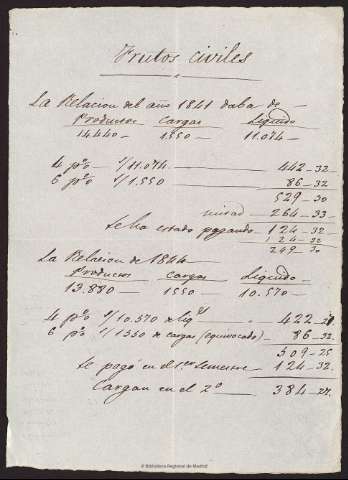 Frutos civiles
La Relacion del año 1841 daba de —
Productos Cargas Liquido
14440 — 1550 — 11.074 —
4 p%o s/11.074 — 442-32
6 p%o s/1.550 — 86-32
529-30
mitad — 264-33
Se ha estado pagando — 124-32
124-32
249-30
La Relacion de 1844
Productos Cargas Liquido
13.880 — 1550 — 10.570 —
4 p%o s/10.570 de liq — 422-
6 p%o s/1350 de cargas (equivocado) — 86-32
509-25
Se pagó en el 1er semestre — 124-32
Cargan en el 2º — 384-
© Biblioteca Regional de Madrid